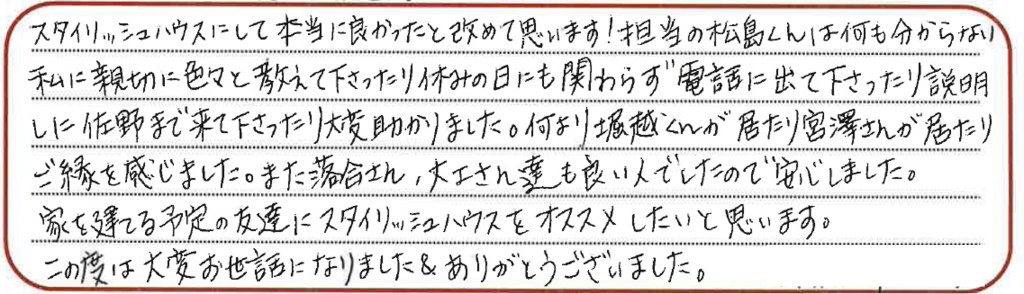 スタイリッシュハウスにして本当に良かったと改めて思います!担当の松島くんは何も分からない
私に親切に色々と教えて下さったり休みの日にも関わらず電話に出て下さったり説明
しに佐野まで来て下さったり大変助かりました。何より堀越くんが居たり宮澤さんが居たり
ご縁を感じました。また落合さん,大工さん達も良い人でしたので安心しました。
家を建てる予定の友達にスタイリッシュハウスをオススメしたいと思います。
この度は大変お世話になりました&ありがとうございました。